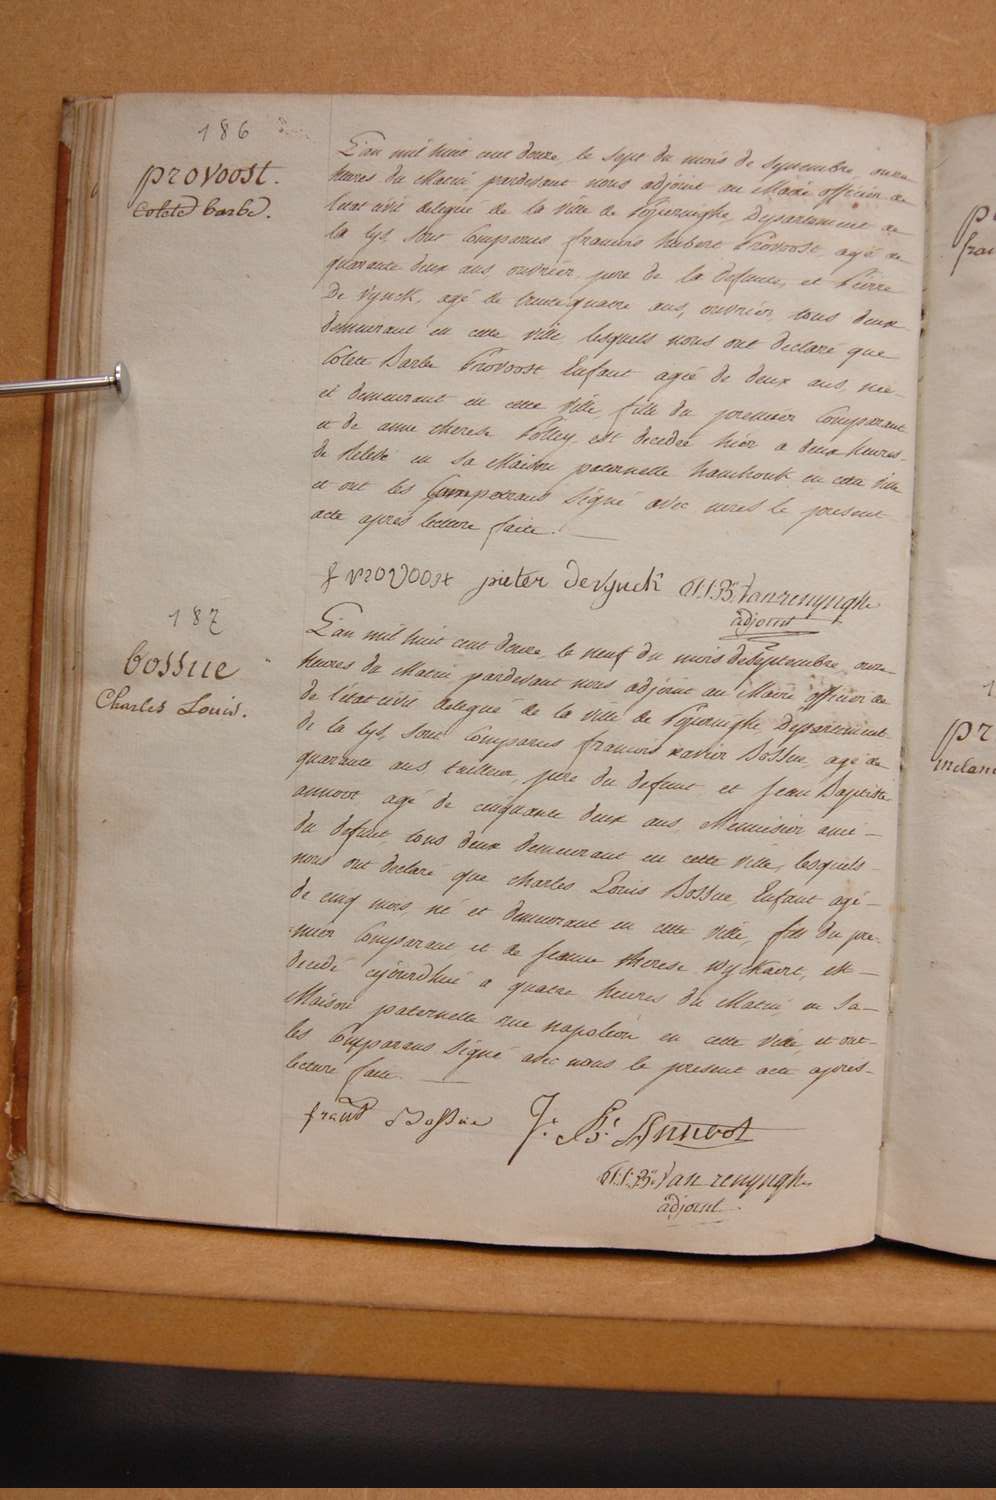 186
provoost.
Colete barbe.
L'an mil huit cent douze, le sept du mois de Septembre, onze
heures du Matin pardevant nous adjoint au Maire officier de
l'état civil delegué de la ville de Poperinghe, Departement de
la Lys, sont Comparus francois hubert Provoost, agé de
quarante deux ans ouvrier, pere de la defunte, et Pierre
De Vynck, agé de trente quatre ans, ouvrier, tous deux
demeurant en cette ville, lesquels nous ont declaré que
Colette Barbe Provoost Enfant agée de deux ans, née
et demeurant en cette ville, fille du premier Comparant
et de anne therese Folley est decedée hier a deux heures
de relevé en sa Maison paternelle en cette ville
et ont les Comparans Signé avec nous le present
acte apres lecture faite.
f provoost pieter devynck Vanrenynghe
adjoint
187
bossue
Charles Louis.
L'an mil huit cent douze, le neuf du mois de Septembre, onze
heures du Matin pardevant nous adjoint au Maire officier de
de l'état civil delegué de la ville de Poperinghe, Departement
de la Lys, sont Comparus francois xavier Bossue, agé de
quarante ans tailleur, pere du defunt et Jean Baptiste
annoot agé de cinquante deux ans, Menuisier ami
du defunt, tous deux demeurant en cette ville, lesquels
nous ont declaré que Charles Louis Bossue, Enfant agé
de cinq mois, né et demeurant en cette ville, fils du pre-
mier Comparant et de Jeanne therese Wyckaert, est
decedé cejourdhui a quatre heures du Matin en sa
Maison paternelle rue napoleon en cette ville, et ont
les Comparans Signé avec nous le present acte après
lecture faite.
frans Bossue J. B. Annoot
Van renynghe
adjoint